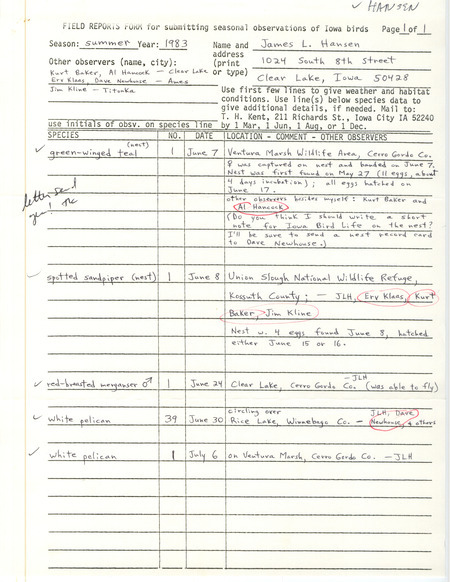 ✓ HANSEN
FIELD REPORTS FORM for submitting seasonal observations of Iowa birds Page 1 of 1
Season: summer Year: 1983
Name and address (print or type)
James L. Hansen
1024 South 8th Street
Clear Lake, Iowa 50428
Other observers (name, city):
Kurt Baker, Al Hancock — Clear Lake
Erv Klaas, Dave Newhouse — Ames
Jim Kline — Titonka
Use first few lines to give weather and habitat conditions. Use line(s) below species data to give additional details, if needed. Mail to: T. H. Kent, 211 Richards St., Iowa City IA 52240 by 1 Mar, 1 Jun, 1 Aug, or 1 Dec.
use initials of obsv. on species line
SPECIES NO. DATE LOCATION - COMMENT - OTHER OBSERVERS
✓ green-winged teal (nest) 1 June 7 Ventura Marsh Wildlife Area, Cerro Gordo Co.
♀ was captured on nest and banded on June 7.
Nest was first found on May 27 (11 eggs, about
4 days incubation); all eggs hatched on
June 17.
other observers besides myself: Kurt Baker and
Al Hancock
(Do you think I should write a short
note for Iowa Bird Life on the nest?
I'll be sure to send a nest record card
to Dave Newhouse.)
letter sent
TK
✓ spotted sandpiper (nest) 1 June 8 Union Slough National Wildlife Refuge,
Kossuth County; — JLH, Erv Klaas, Kurt
Baker, Jim Kline
Nest w. 4 eggs found June 8, hatched
either June 15 or 16.
✓ red-breasted merganser ♂ 1 June 24 Clear Lake, Cerro Gordo Co. (was able to fly) —JLH
✓ white pelican 39 June 30 circling over
Rice Lake, Winnebago Co. — JLH, Dave
Newhouse, & others
✓ white pelican 1 July 6 on Ventura Marsh, Cerro Gordo Co. —JLH